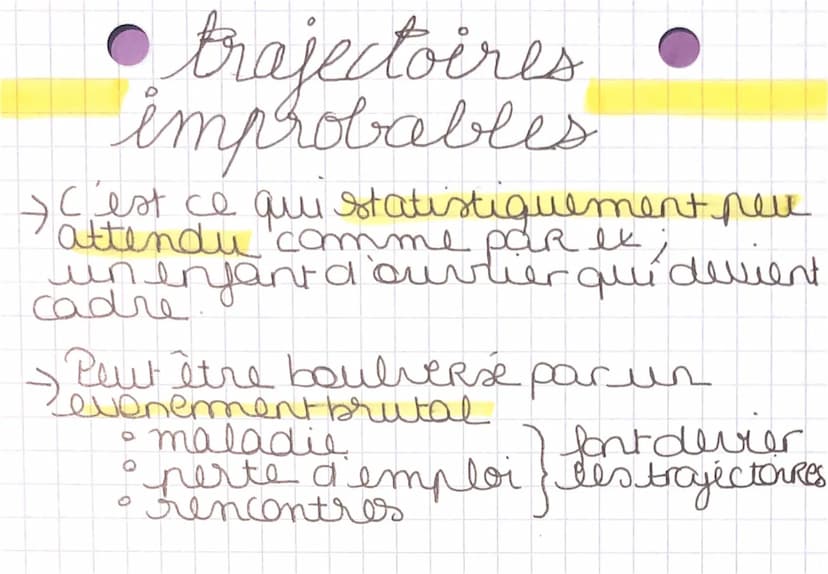 trajectoires
improbables
→ C'est ce qui statistiquement peu
attendu comme par ex ;
un enfant d'ouvrier qui devient
cadre.
→ Peut être boulversé par un
evenement brutal
° maladie
° perte d'emploi } font devier
° rencontres les trajectoires